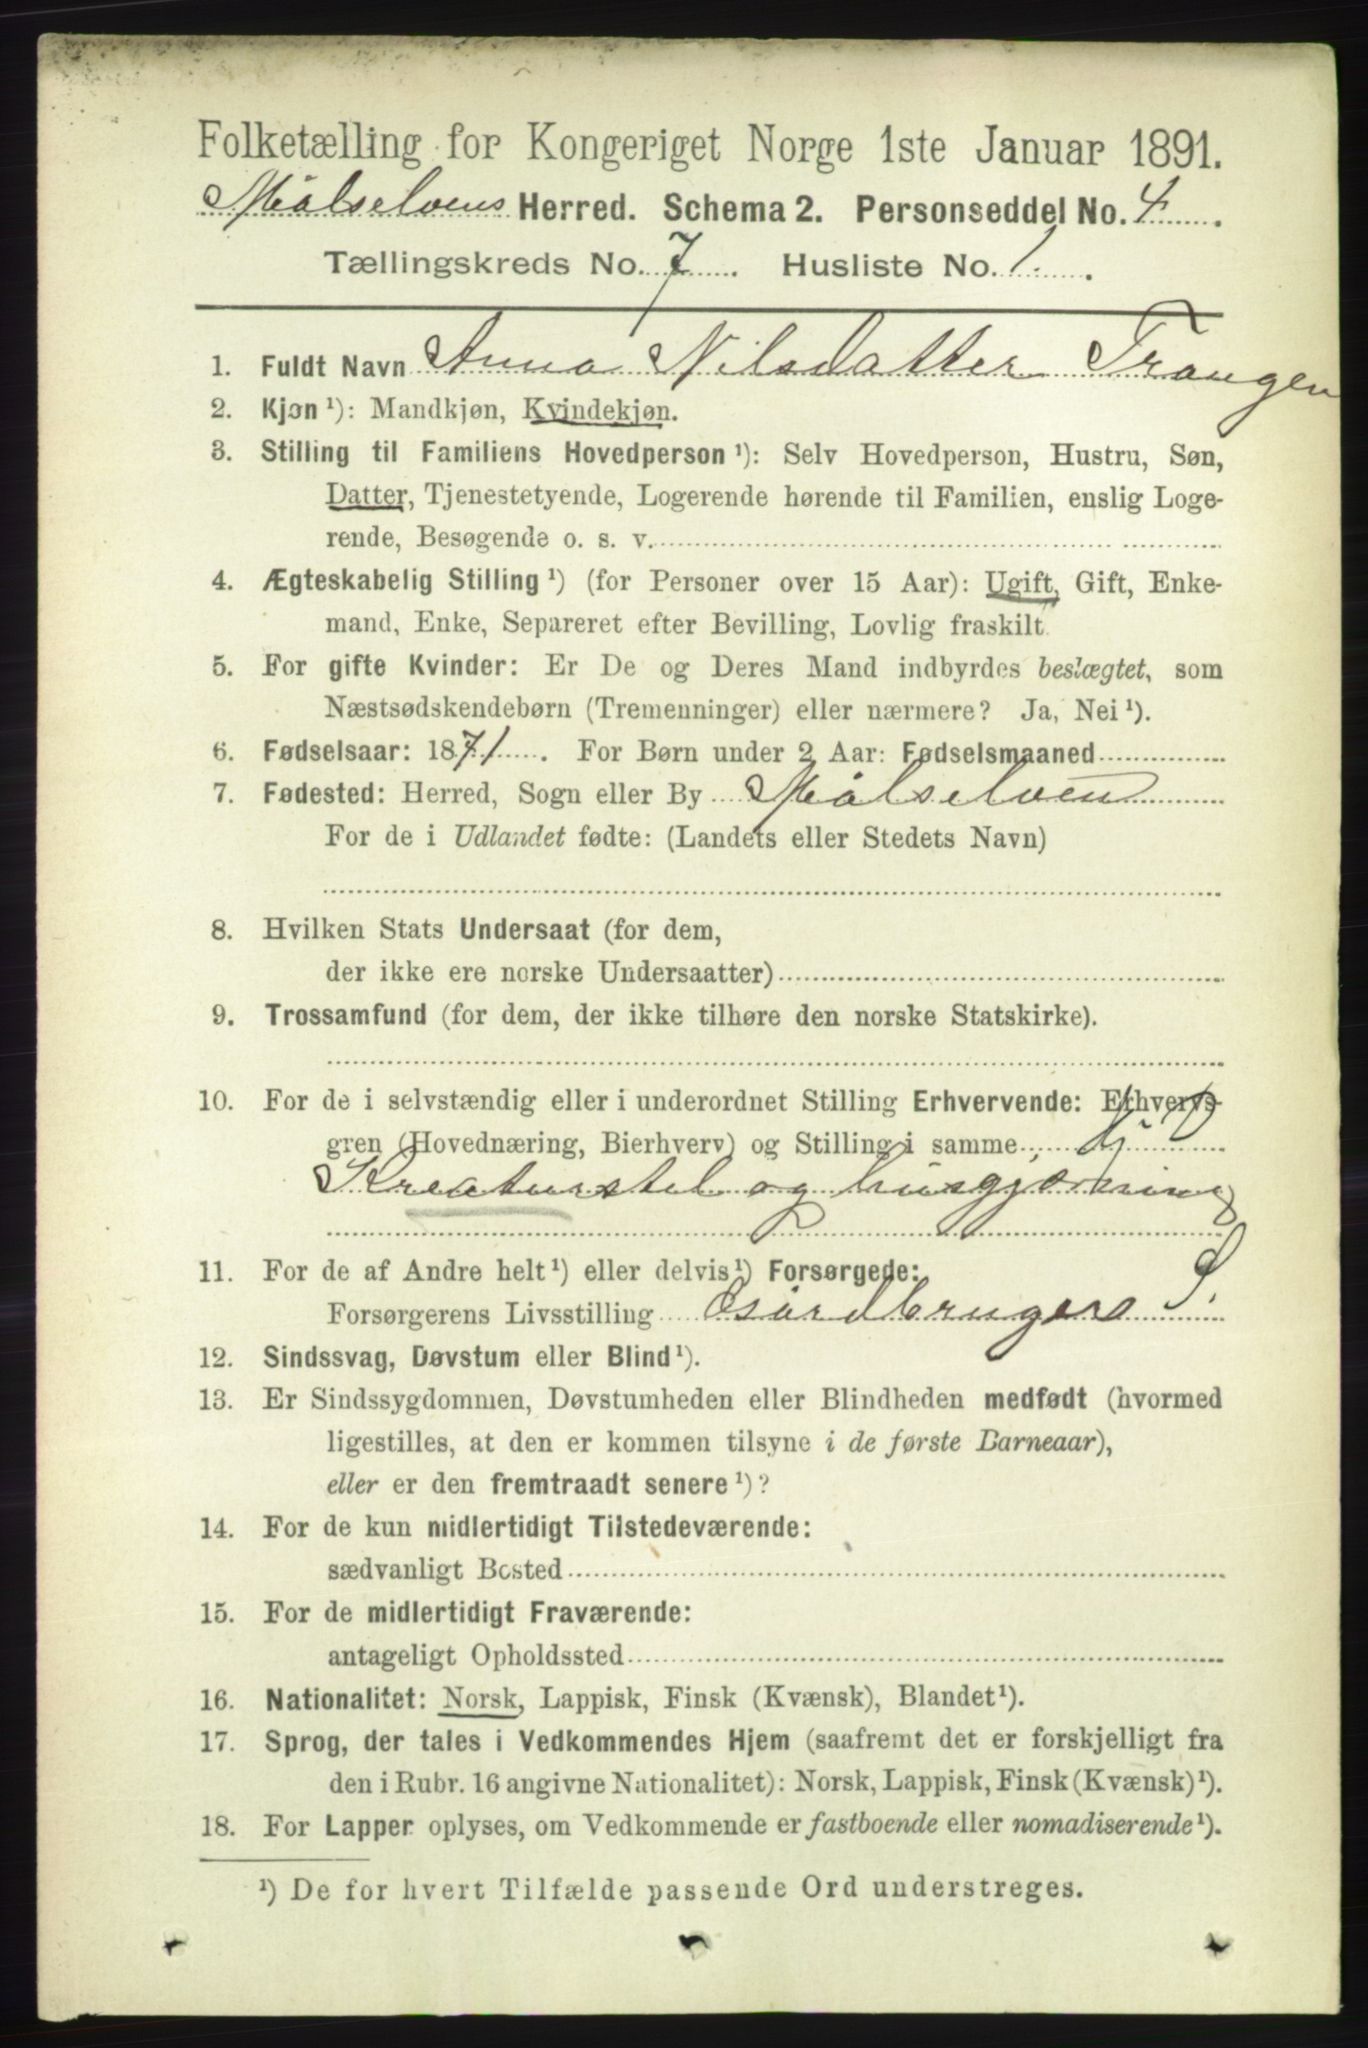 Folketælling for Kongeriget Norge 1ste Januar 1891.
Målselvens Herred. Schema 2. Personseddel No. 4
Tællingskreds No. 7. Husliste No. 1.
1. Fuldt Navn Anna Nilsdatter Trangen
2. Kjøn ¹): Mandkjøn, Kvindekjøn.
3. Stilling til Familiens Hovedperson ¹): Selv Hovedperson, Hustru, Søn,
Datter, Tjenestetyende, Logerende hørende til Familien, enslig Loge-
rende, Besøgende o. s. v.
4. Ægteskabelig Stilling ¹) (for Personer over 15 Aar): Ugift, Gift, Enke-
mand, Enke, Separeret efter Bevilling, Lovlig fraskilt.
5. For gifte Kvinder: Er De og Deres Mand indbyrdes beslægtet, som
Næstsødskendebørn (Tremenninger) eller nærmere? Ja, Nei ¹).
6. Fødselsaar: 1871. For Børn under 2 Aar: Fødselsmaaned
7. Fødested: Herred, Sogn eller By Målselven
For de i Udlandet fødte: (Landets eller Stedets Navn)
8. Hvilken Stats Undersaat (for dem,
der ikke ere norske Undersaatter)
9. Trossamfund (for dem, der ikke tilhøre den norske Statskirke).
10. For de i selvstændig eller i underordnet Stilling Erhvervende: Erhvervs-
gren (Hovednæring, Bierhverv) og Stilling i samme
Kreaturstel og husgjerning
11. For de af Andre helt ¹) eller delvis ¹) Forsørgede:
Forsørgerens Livsstilling Gårdbruger S.
12. Sindssvag, Døvstum eller Blind ¹).
13. Er Sindssygdommen, Døvstumheden eller Blindheden medfødt (hvormed
ligestilles, at den er kommen tilsyne i de første Barneaar),
eller er den fremtraadt senere ¹)?
14. For de kun midlertidigt Tilstedeværende:
sædvanligt Bosted
15. For de midlertidigt Fraværende:
antageligt Opholdssted
16. Nationalitet: Norsk, Lappisk, Finsk (Kvænsk), Blandet ¹).
17. Sprog, der tales i Vedkommendes Hjem (saafremt det er forskjelligt fra
den i Rubr. 16 angivne Nationalitet): Norsk, Lappisk, Finsk (Kvænsk) ¹).
18. For Lapper oplyses, om Vedkommende er fastboende eller nomadiserende ¹).
¹) De for hvert Tilfælde passende Ord understreges.